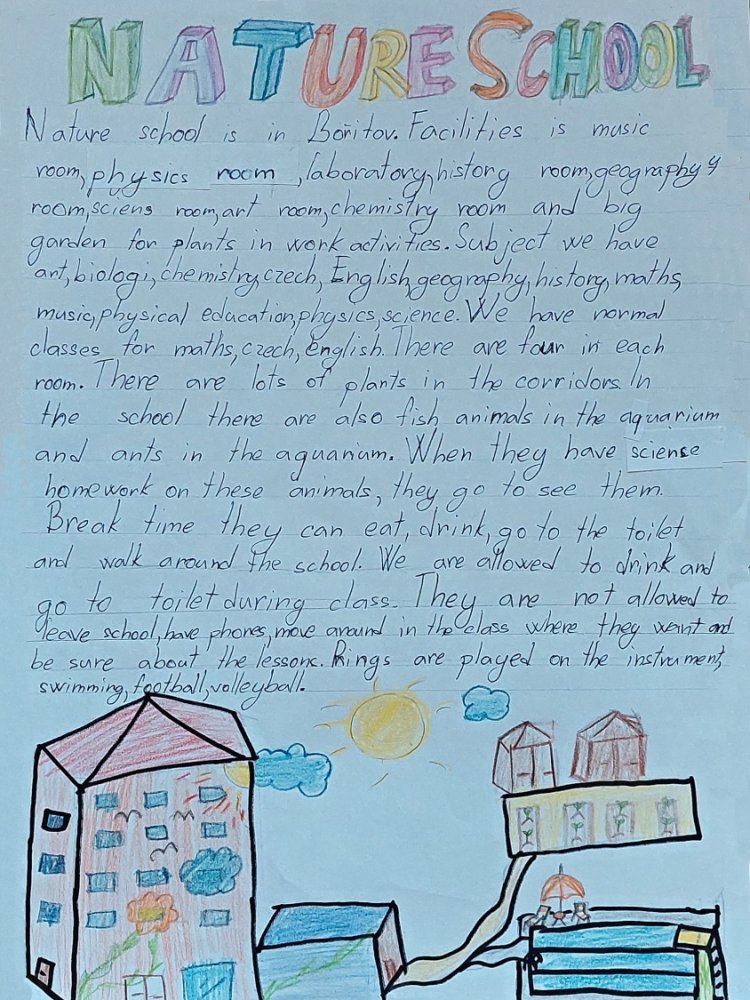 NATURE SCHOOL
Nature school is in Bořitov. Facilities is music
room, physics room, laboratory, history room, geography y
room, sciens room, art room, chemistry room and big
garden for plants in work activities. Subject we have
art, biologi, chemistry, czech, English, geography, history, maths,
music, physical education, physics, science. We have normal
classes for maths, czech, english. There are four in each
room. There are lots of plants in the corridors. In
the school there are also fish animals in the aquarium
and ants in the aquarium. When they have science
homework on these animals, they go to see them.
Break time they can eat, drink, go to the toilet
and walk around the school. We are allowed to drink and
go to toilet during class. They are not allowed to
leave school, have phones, move around in the class where they want and
be sure about the lessonc. Rings are played on the instrument,
swimming, football, volleyball.